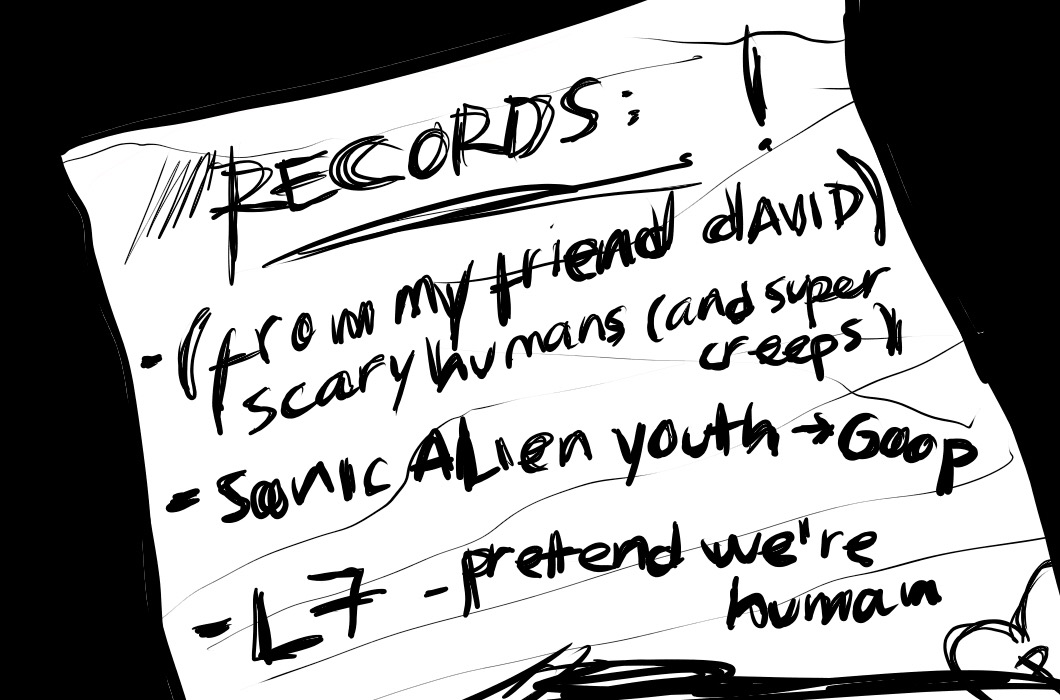 RECORDS: !
- (from my friend dAVID)
scary humans (and super
creeps)
- Sonic ALien youth → Goop
- L7 - pretend we're
human